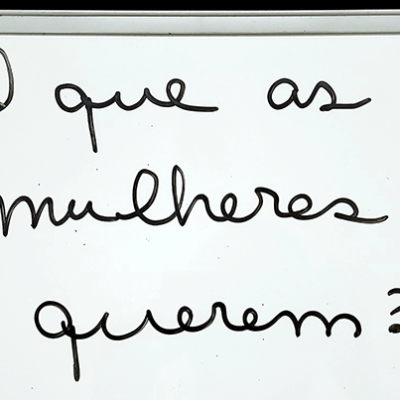 O que as
mulheres
querem?